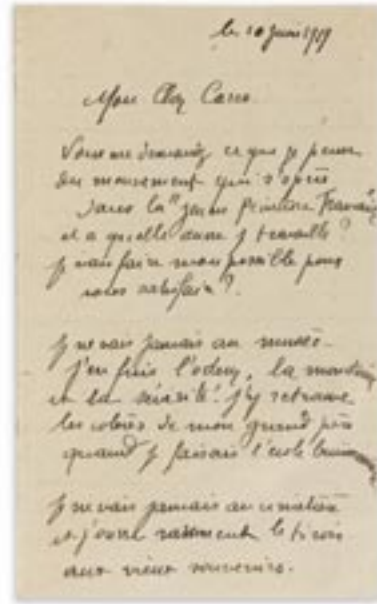 le 10 juin 1919
Mon Cher Carco
Vous me demandez ce que je pense
du mouvement qui s'opère
dans la "jeune Peinture Française
et a quelle œuvre je travaille?
je vais faire mon possible pour
vous satisfaire.
je ne vais jamais au musée.
j'en fuis l'odeur, la monotonie
et la sévérité. j'y retrouve
les colères de mon grand père
quand je faisais l'école buissonnière
je ne vais jamais au cimetière
et j'ouvre rarement le tiroir
aux vieux souvenirs.